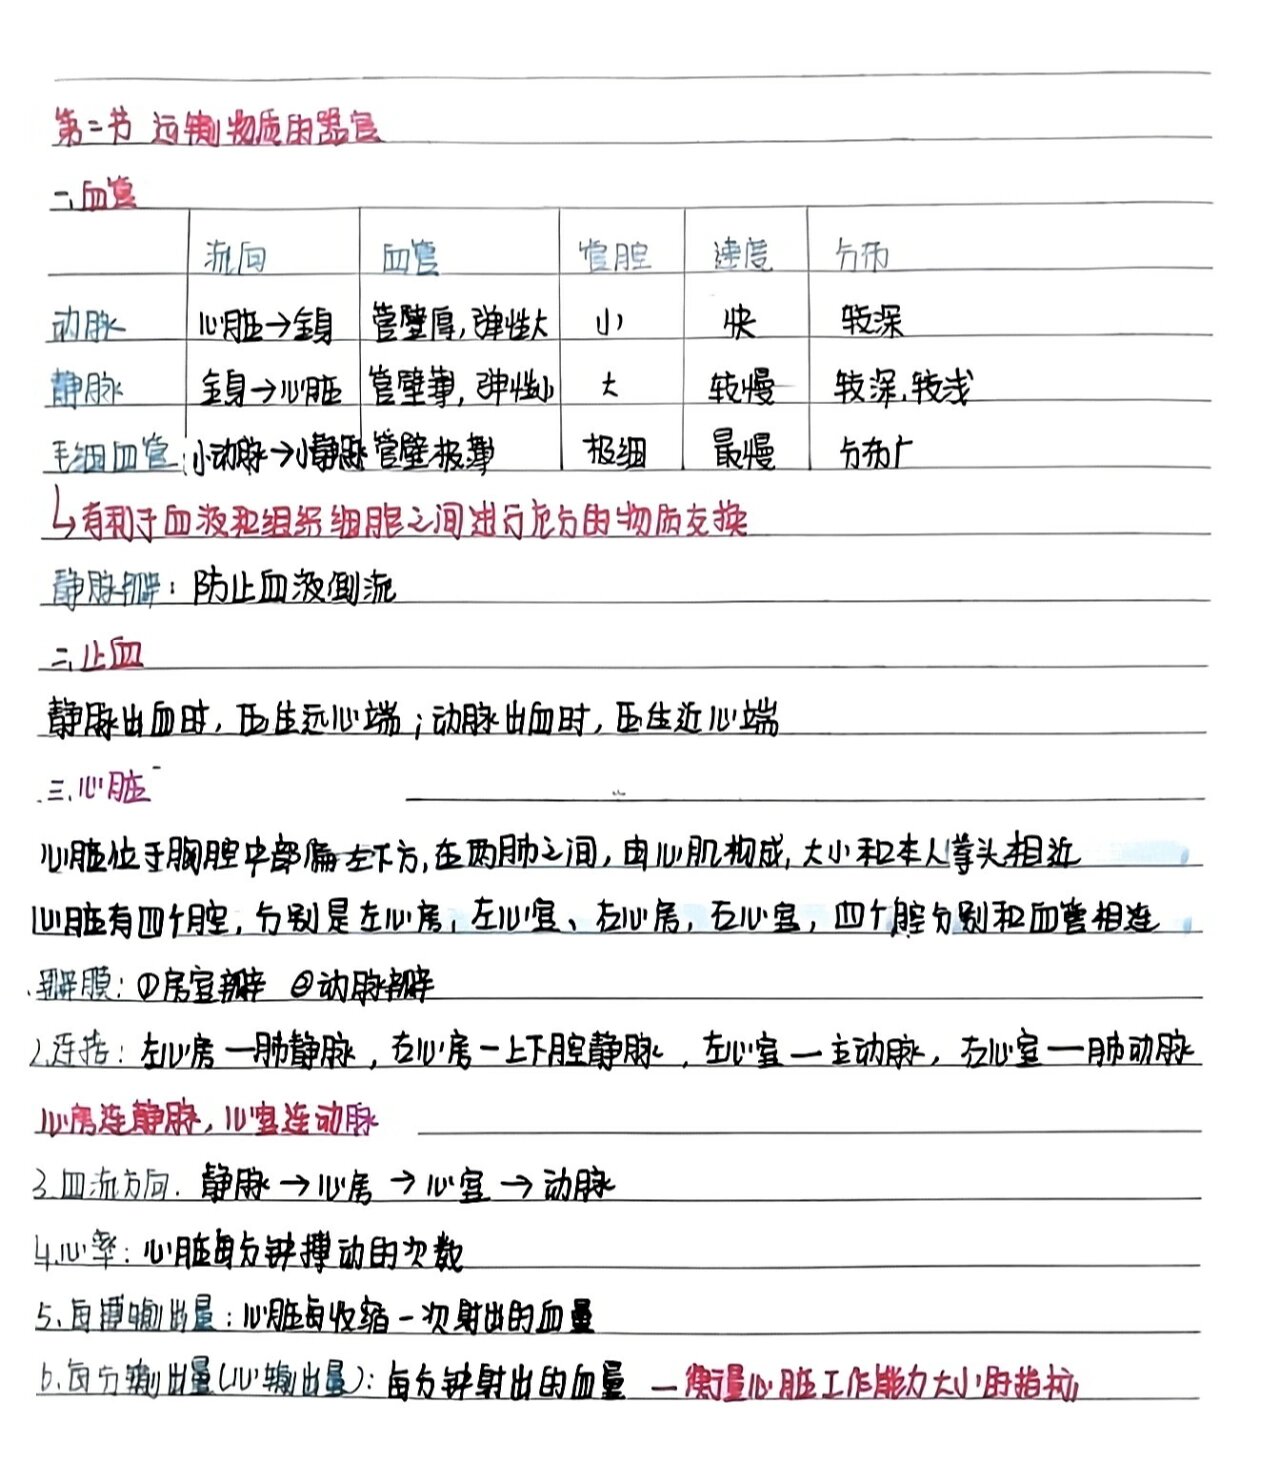 第二节 运输物质的器官
一、血管
流向 血管 管腔 速度 分布
动脉 心脏→全身 管壁厚,弹性大 小 快 较深
静脉 全身→心脏 管壁薄,弹性小 大 较慢 较深、较浅
毛细血管 小动脉→小静脉 管壁极薄 极细 最慢 分布广
↳有利于血液和组织细胞之间进行充分的物质交换
静脉瓣:防止血液倒流
二、止血
静脉出血时,压住远心端;动脉出血时,压住近心端
三、心脏
心脏位于胸腔中部偏左下方,在两肺之间,由心肌构成,大小和本人拳头相近
心脏有四个腔,分别是左心房,左心室、右心房,右心室,四个腔分别和血管相连
瓣膜:①房室瓣 ②动脉瓣
2.连接:左心房一肺静脉,右心房一上下腔静脉,左心室一主动脉,右心室一肺动脉
心房连静脉,心室连动脉
3.血流方向.静脉→心房→心室→动脉
4.心率:心脏每分钟搏动的次数
5、每搏输出量:心脏每收缩一次射出的血量
6、每分输出量(心输出量):每分钟射出的血量 一衡量心脏工作能力大小的指标